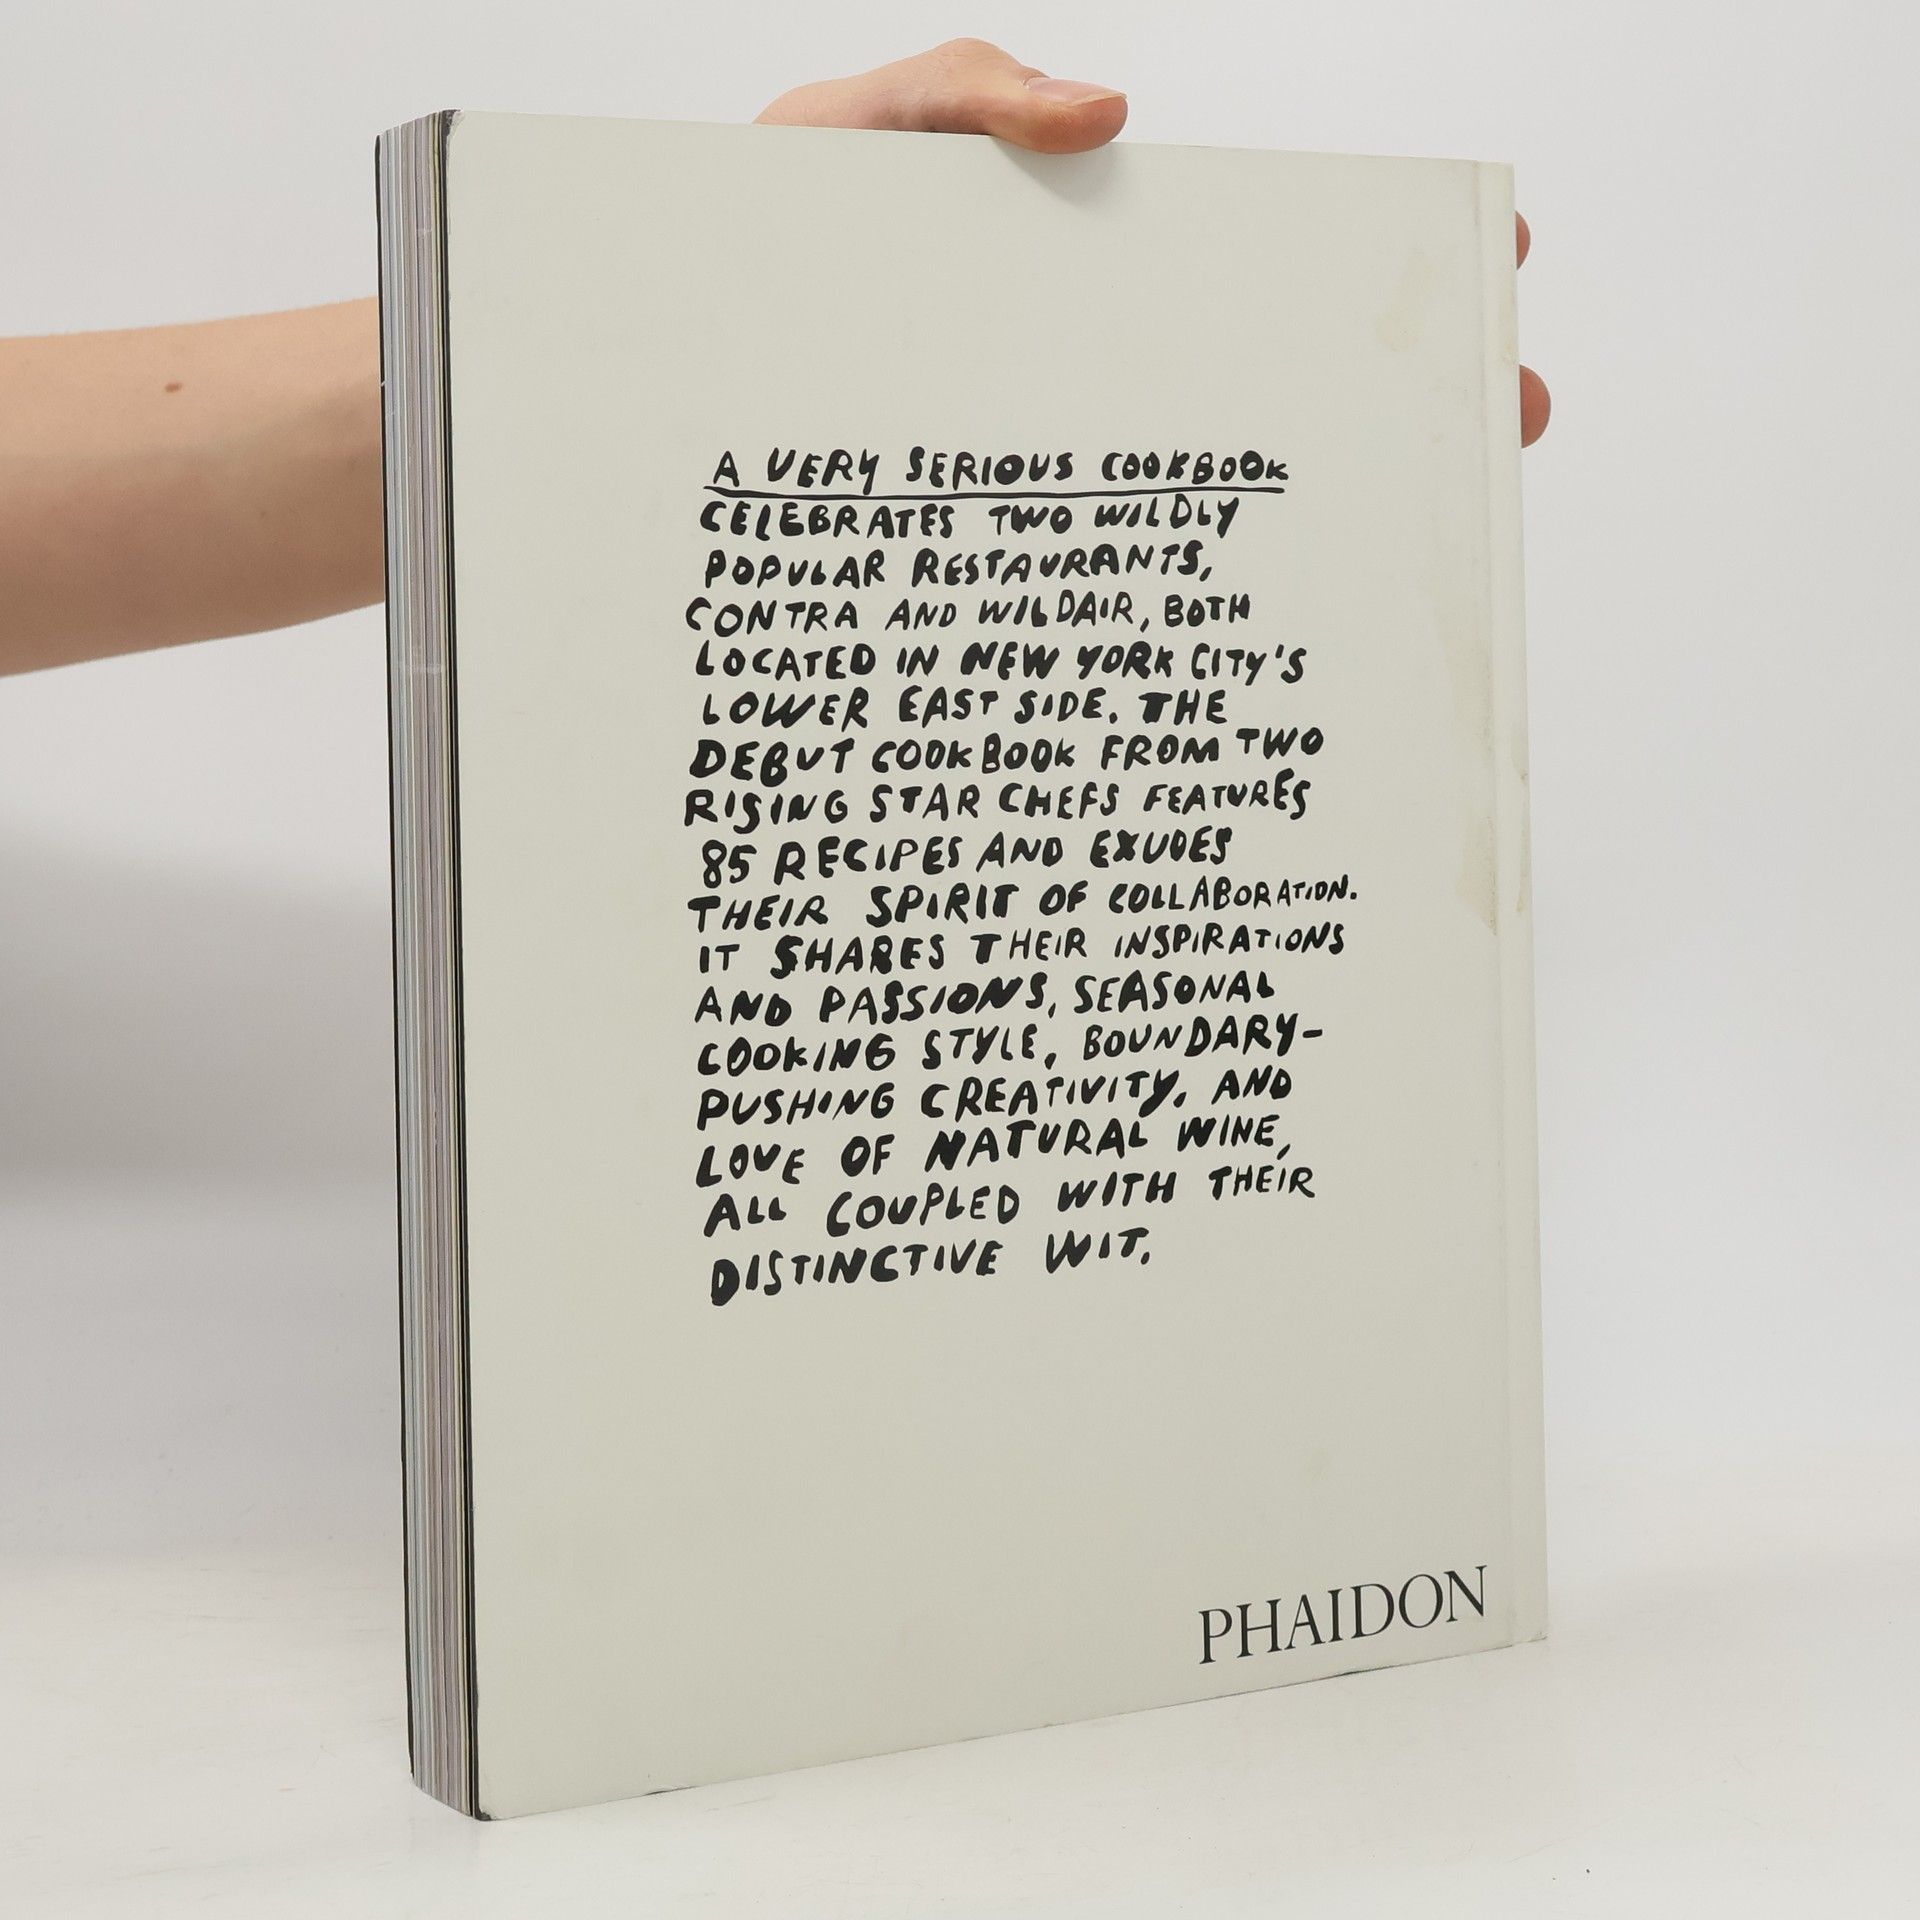 A VERY SERIOUS COOKBOOK
CELEBRATES TWO WILDLY
POPULAR RESTAURANTS,
CONTRA AND WILDAIR, BOTH
LOCATED IN NEW YORK CITY'S
LOWER EAST SIDE. THE
DEBUT COOKBOOK FROM TWO
RISING STAR CHEFS FEATURES
85 RECIPES AND EXUDES
THEIR SPIRIT OF COLLABORATION.
IT SHARES THEIR INSPIRATIONS
AND PASSIONS, SEASONAL
COOKING STYLE, BOUNDARY-
PUSHING CREATIVITY, AND
LOVE OF NATURAL WINE,
ALL COUPLED WITH THEIR
DISTINCTIVE WIT.
PHAIDON